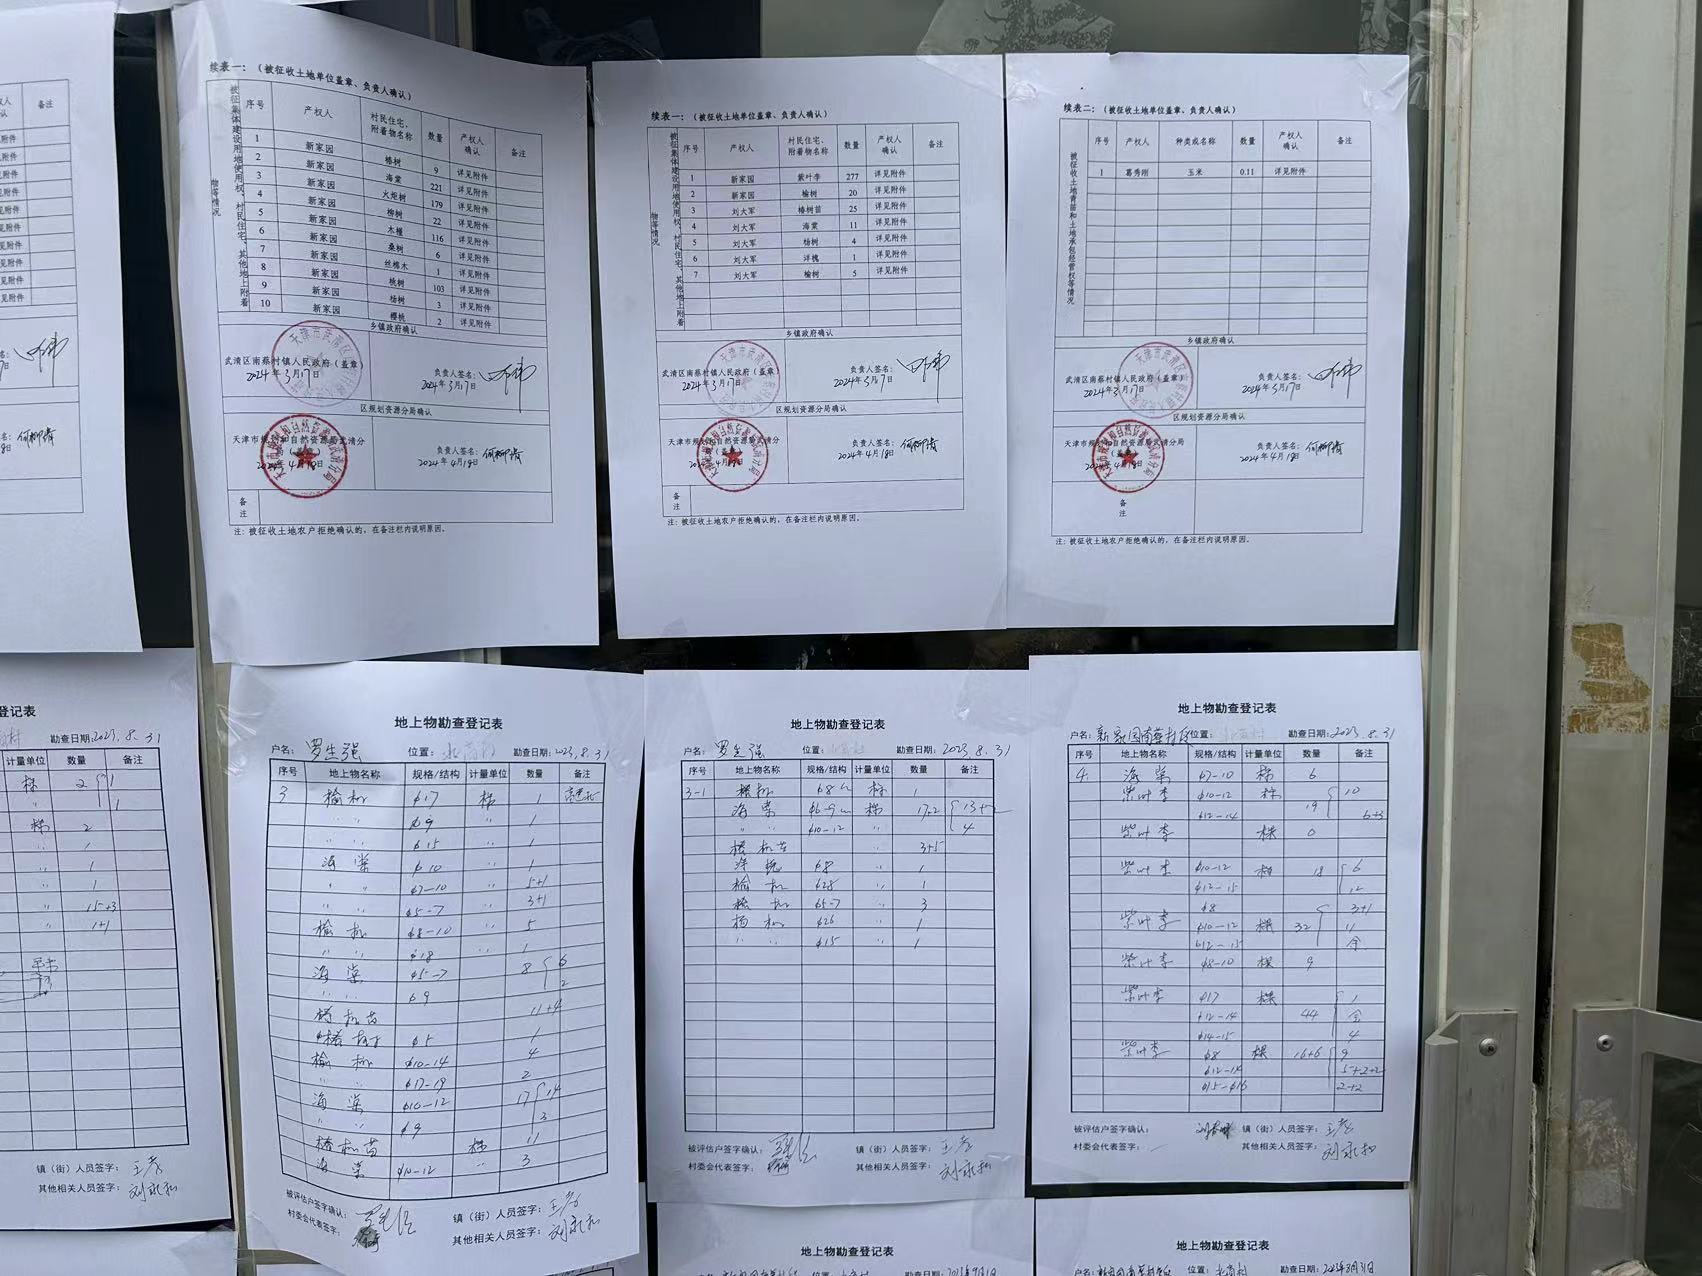 人
认
备注
见附件
见附件
见附件
见附件
见附件
见附件
见附件
见附件
见附件
见附件
签名:
签名:
续表一:(被征收土地单位盖章、负责人确认)
被征集体建设用地使用权、村民住宅、其他地上附着
物等情况
序号 产权人 村民住宅、附着物名称 数量 产权人确认 备注
1 新家园 椿树 9 详见附件
2 新家园 海棠 221 详见附件
3 新家园 火炬树 179 详见附件
4 新家园 柳树 22 详见附件
5 新家园 木槿 116 详见附件
6 新家园 桑树 6 详见附件
7 新家园 丝棉木 1 详见附件
8 新家园 桃树 103 详见附件
9 新家园 杨树 3 详见附件
10 新家园 樱桃 2 详见附件
乡镇政府确认
武清区南蔡村镇人民政府(盖章)
2024年3月17日
负责人签名:
2024年3月17日
区规划资源分局确认
天津市规划和自然资源局武清分
局
2024年4月18日
负责人签名:
2024年4月18日
备注
注:被征收土地农户拒绝确认的,在备注栏内说明原因。
续表一:(被征收土地单位盖章、负责人确认)
被征集体建设用地使用权、村民住宅、其他地上附着
物等情况
序号 产权人 村民住宅、附着物名称 数量 产权人确认 备注
1 新家园 紫叶李 277 详见附件
2 新家园 榆树 20 详见附件
3 刘大军 椿树苗 25 详见附件
4 刘大军 海棠 11 详见附件
5 刘大军 杨树 4 详见附件
6 刘大军 洋槐 1 详见附件
7 刘大军 榆树 5 详见附件
乡镇政府确认
武清区南蔡村镇人民政府(盖章)
2024年3月17日
负责人签名:
2024年3月17日
区规划资源分局确认
天津市规划和自然资源局武清分局
(盖章)
2024年4月18日
负责人签名:
2024年4月18日
备注
注:被征收土地农户拒绝确认的,在备注栏内说明原因。
续表二:(被征收土地单位盖章、负责人确认)
被征收土地青苗和土地承包经营权等情况
序号 产权人 种类或名称 数量 产权人确认 备注
1 葛秀刚 玉米 0.11 详见附件
乡镇政府确认
武清区南蔡村镇人民政府(盖章)
2024年3月17日
负责人签名:
2024年3月17日
区规划资源分局确认
天津市规划和自然资源局武清分局
(盖章)
2024年4月18日
负责人签名:
2024年4月18日
备注
注:被征收土地农户拒绝确认的,在备注栏内说明原因。
登记表
村 勘查日期:2023.8.31
计量单位 数量 备注
株 2 1
〃 1
株 2
〃 1
〃 1
〃 1
〃 15+3
〃 1+1
镇(街)人员签字:
其他相关人员签字:刘永和
地上物勘查登记表
户名:罗生强 位置: 勘查日期:2023.8.31
序号 地上物名称 规格/结构 计量单位 数量 备注
3 榆树 φ17 株 1
〃 〃 φ9 〃 1
〃 〃 φ15 〃 1
海棠 φ10 〃 1
〃 〃 φ7-10 〃 5+1
〃 〃 φ5-7 〃 3+1
榆树 φ8-10 〃 5
〃 〃 φ18 〃 1
海棠 φ5-7 8 6
〃 〃 φ9 2
椿树苗 11+4
椿树 φ5 1
榆树 φ10-14 4
〃 〃 φ17-19 2
海棠 φ10-12 17 14
〃 〃 φ9 3
椿树苗 株 11
海棠 φ10-12 〃 3
被评估户签字确认:
镇(街)人员签字:
村委会代表签字:
其他相关人员签字:刘永和
地上物勘查登记表
户名:罗生强 位置: 勘查日期:2023.8.31
序号 地上物名称 规格/结构 计量单位 数量 备注
3-1 φ8 株 1
海棠 φ6-9 株 17+2 13+2
〃 〃 φ10-12 〃 4
椿树苗 〃 3+5
洋槐 φ8 〃 1
榆树 φ28 〃 1
φ5-7 〃 3
杨树 φ26 〃 1
〃 〃 φ15 〃 1
被评估户签字确认:
镇(街)人员签字:
村委会代表签字:
其他相关人员签字:刘永和
地上物勘查登记表
户名:新家园南蔡村段 位置: 勘查日期:2023.8.31
序号 地上物名称 规格/结构 计量单位 数量 备注
4 海棠 φ7-10 株 6
紫叶李 φ10-12 株 19 10
φ12-14 6+3
紫叶李 株 0
紫叶李 φ10-12 株 18 6
φ12-15 12
φ8 3+1
紫叶李 φ10-12 株 32 11
φ12-15
紫叶李 φ8-10 株 9
紫叶李 φ17 株 1
φ12-14 44
φ14-15 4
紫叶李 φ8 株 16+6 9
φ12-14 5+2+2
φ15-φ16 2+2
被评估户签字确认:
镇(街)人员签字:
村委会代表签字:
其他相关人员签字:刘永和
地上物勘查登记表
地上物勘查登记表